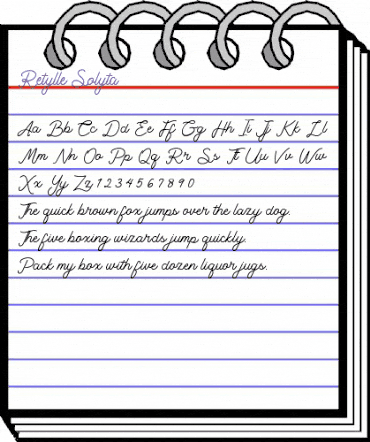 Retylle Solyta
Aa Bb Cc Dd Ee Ff Gg Hh Ii Jj Kk Ll
Mm Nn Oo Pp Qq Rr Ss Tt Uu Vv Ww
Xx Yy Zz 1 2 3 4 5 6 7 8 9 0
The quick brown fox jumps over the lazy dog.
The five boxing wizards jump quickly.
Pack my box with five dozen liquor jugs.